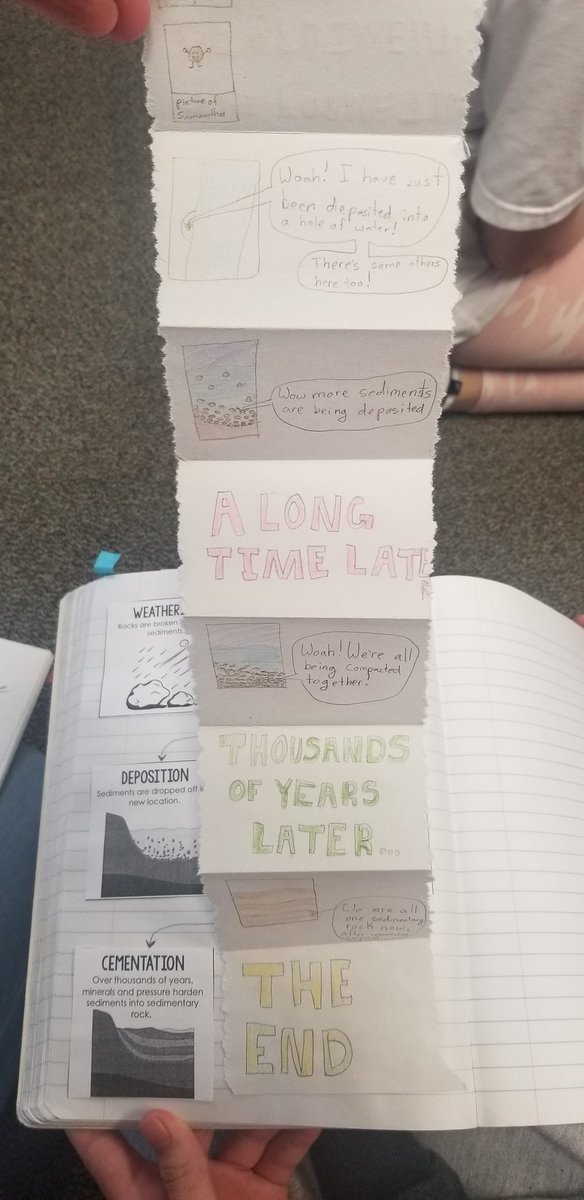 picture of
Samantha
Woah! I have just
been deposited into
a hole of water!
There's some others
here too!
Wow more sediments
are being deposited
A LONG
TIME LATE
R
Woah! We're all
being compacted
together!
THOUSANDS
OF YEARS
LATER...
We are all
one sedimentary
rock now,
THE
END
WEATHER
Rocks are broken
sediments
DEPOSITION
Sediments are dropped off in
new location.
CEMENTATION
Over thousands of years,
minerals and pressure harden
sediments into sedimentary
rock.